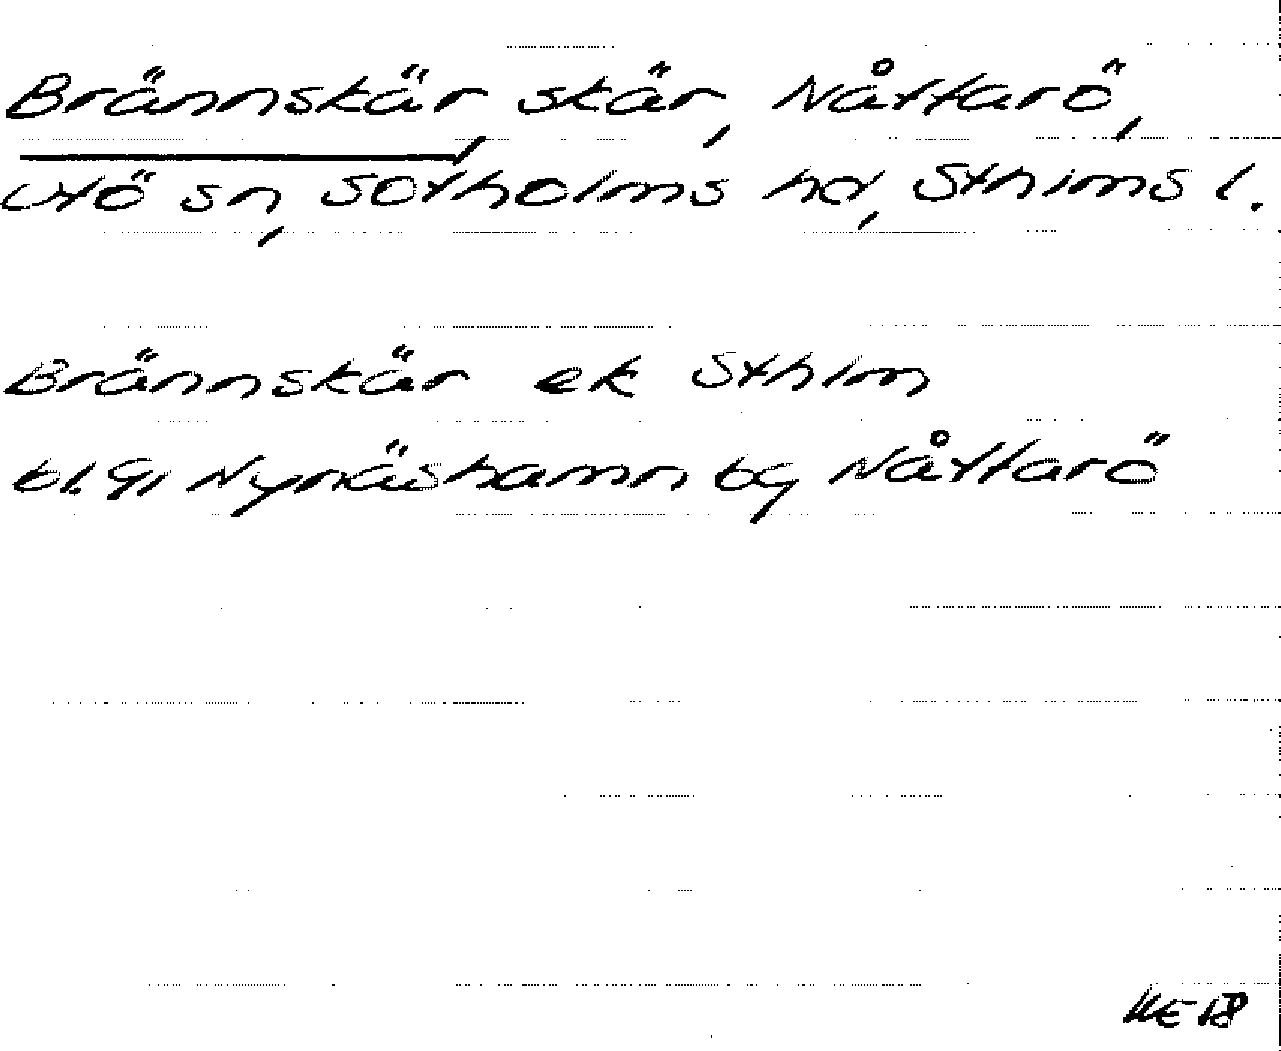 Brännskär, skär, Nåttarö,
Utö sn, Sotholms hd, Sthlms l.
Brännskär ek Sthlm
bl. 91 Nynäshamn by Nåttarö